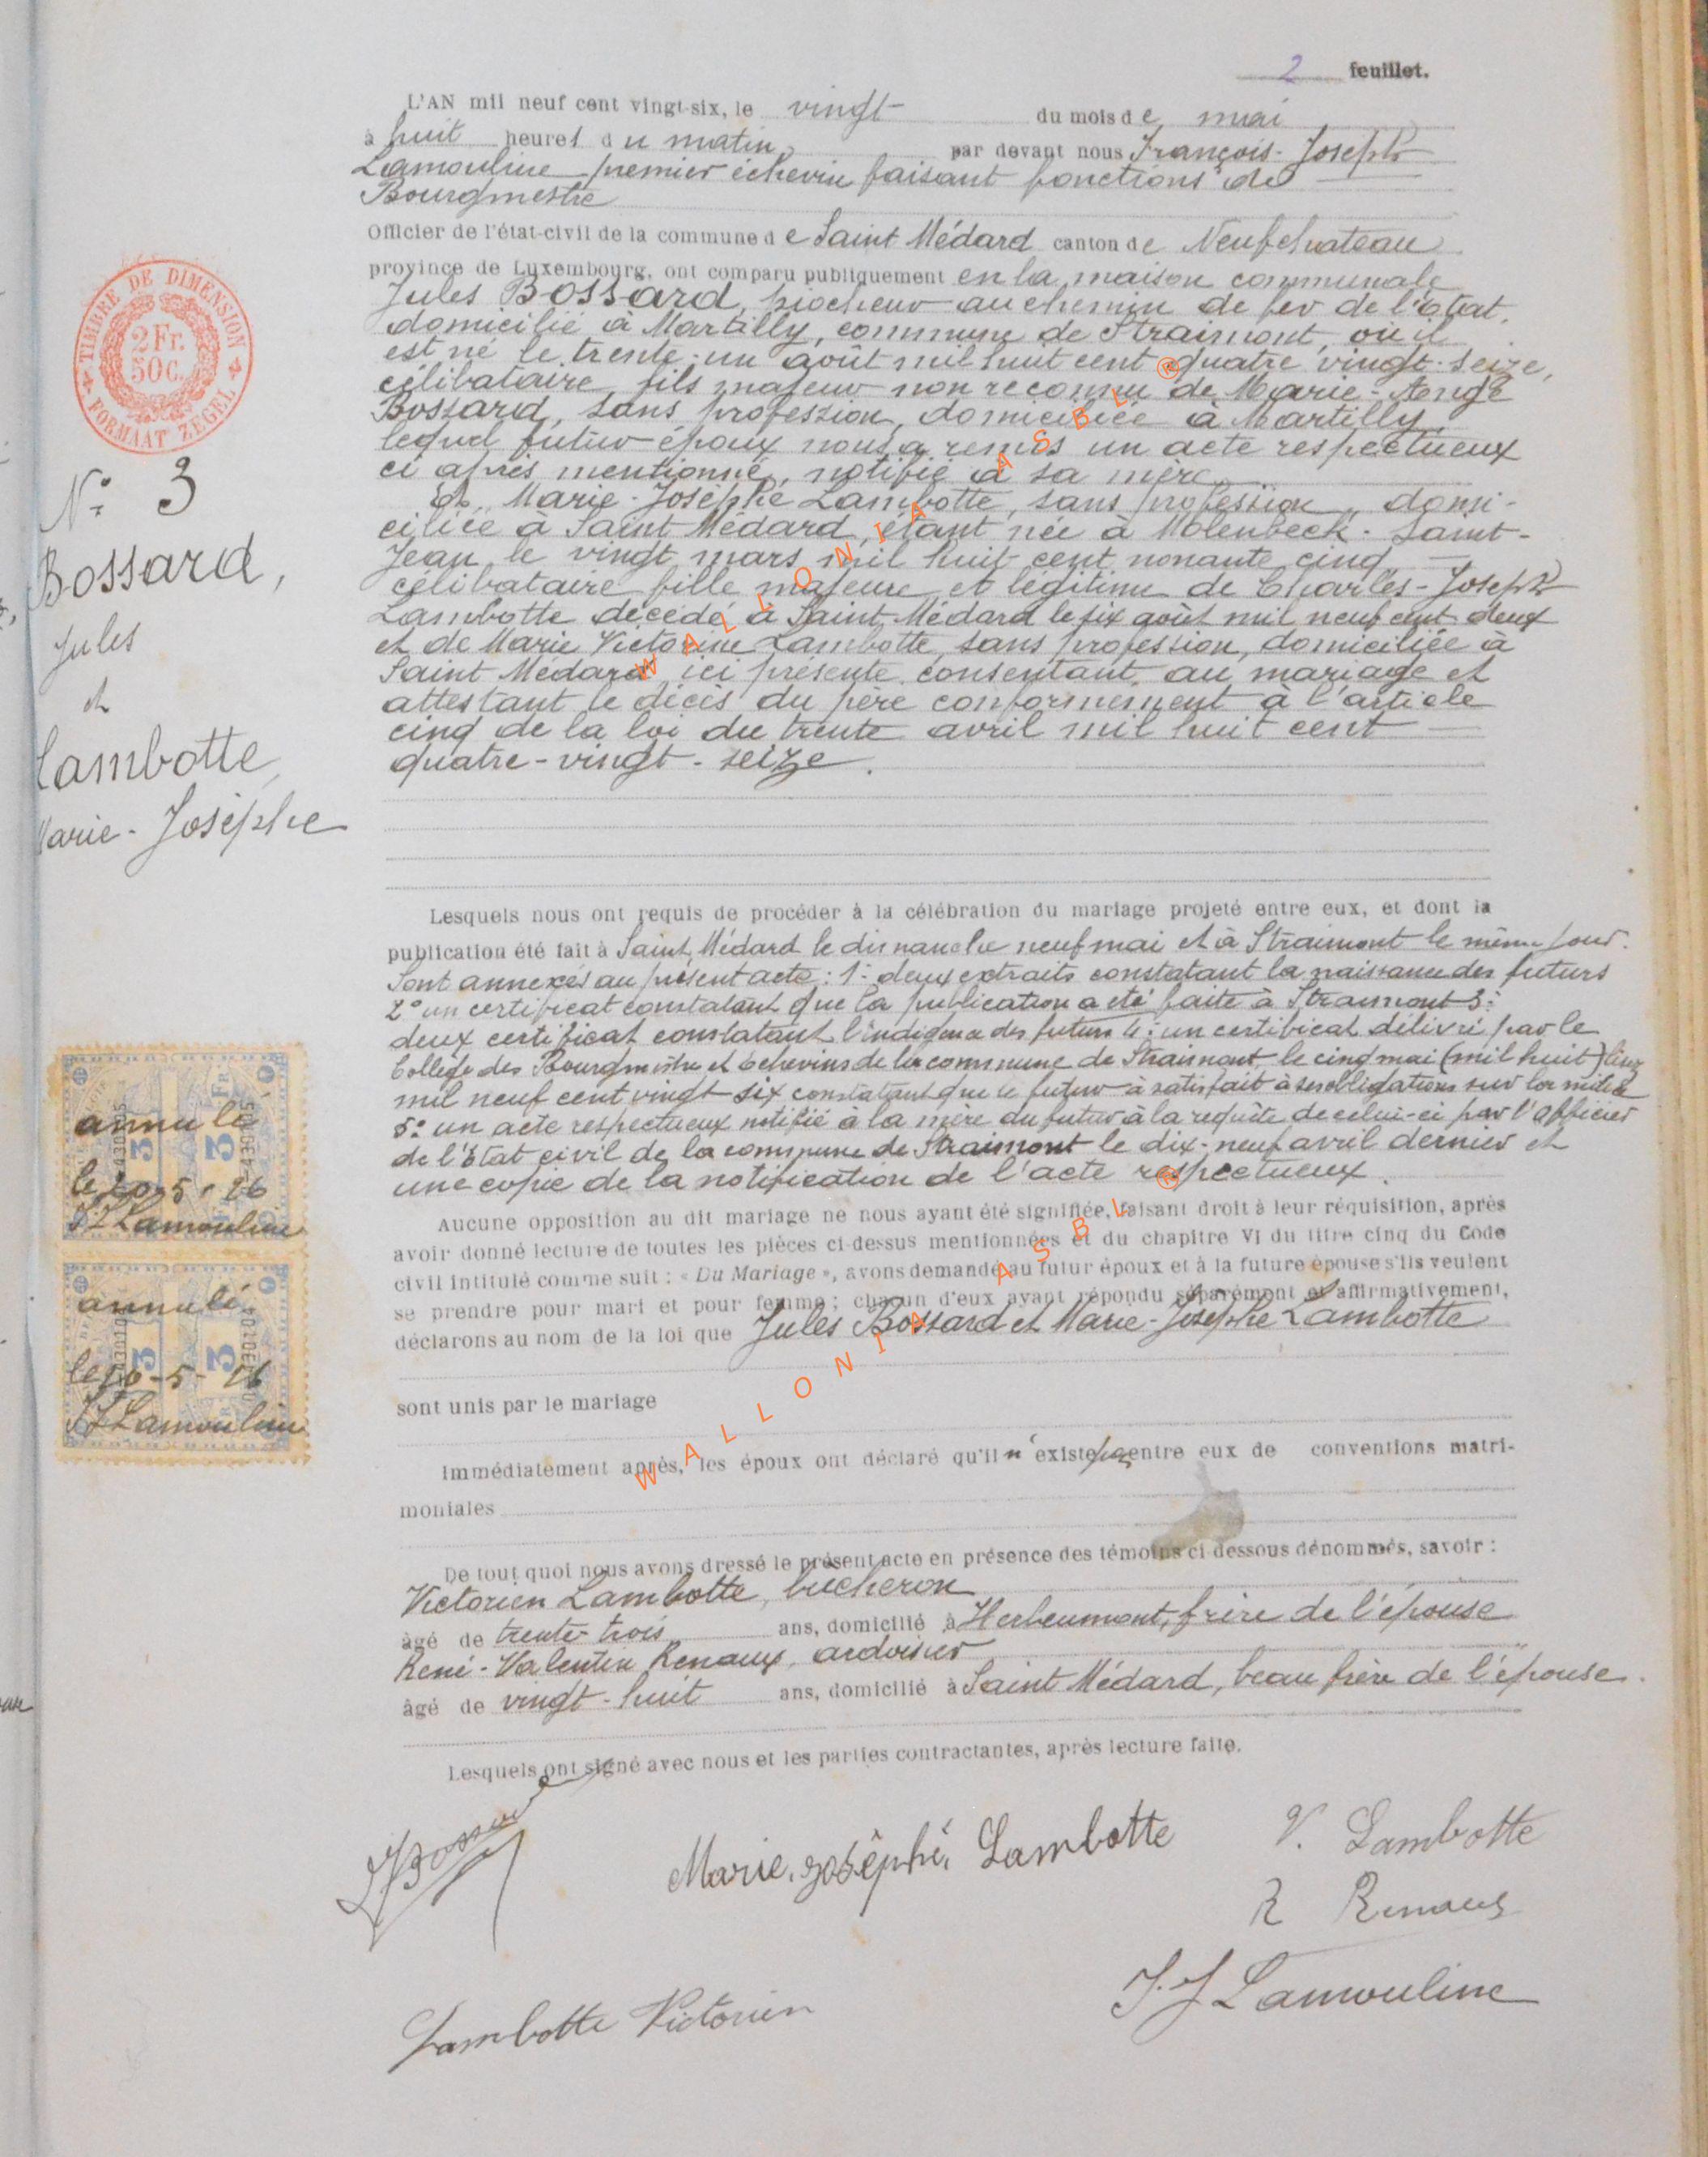 2 feuillet.
L'AN mil neuf cent vingt-six, le vingt du mois de mai
à huit heures du matin, par devant nous François-Joseph
Lamouline premier échevin faisant fonctions de
Bourgmestre
Officier de l'état-civil de la commune de Saint Médard canton de Neufchateau
province de Luxembourg, ont comparu publiquement en la maison communale
Jules BOSSARD, piocheur au chemin de fer de l'état,
domicilié à Martilly, commune de Straimont, où il
est né le trente-un août mil huit cent quatre vingt-seize,
célibataire, fils majeur non reconnu de Marie-
Bossard, sans profession, domiciliée à Martilly,
lequel futur époux nous a remis un acte respectueux
ci après mentionné, notifié à sa mère,
Et Marie-Josèphe Lambotte, sans profession, domi-
ciliée à Saint Médard, étant née à Molenbeck-Saint-
Jean le vingt mars mil huit cent nonante cinq
célibataire fille majeure et légitime de Charles-Joseph
Lambotte décédé à Saint-Médard le six août mil neuf cent deux
et de Marie Victorine Lambotte, sans profession, domiciliée à
Saint Médard ici présente consentant au mariage et
attestant le décès du père conformément à l'article
cinq de la loi du trente avril mil huit cent
quatre-vingt-seize.
Lesquels nous ont requis de procéder à la célébration du mariage projeté entre eux, et dont la
publication été fait à Saint Médard le dimanche neuf mai et à Straimont le même jour.
Sont annexés au présent acte : 1° deux extraits constatant la naissance des futurs
2° un certificat constatant que la publication a été faite à Straimont 3°
deux certificat constatant l'indigence des futurs 4° un certificat délivré par le
Collège des Bourgmestre et échevins de la commune de Straimont le cinq mai (mil huit)
mil neuf cent vingt-six constatant que le futur à satisfait à ses obligations sur la milice
5° un acte respectueux notifié à la mère du futur à la requête de celui-ci par l'officier
de l'état civil de la commune de Straimont le dix-neuf avril dernier et
une copie de la notification de l'acte respectueux.
Aucune opposition au dit mariage ne nous ayant été signifiée, faisant droit à leur réquisition, après
avoir donné lecture de toutes les pièces ci-dessus mentionnées et du chapitre VI du titre cinq du Code
civil intitulé comme suit : « Du Mariage », avons demandé au futur époux et à la future épouse s'ils veulent
se prendre pour mari et pour femme ; chacun d'eux ayant répondu séparément et affirmativement,
déclarons au nom de la loi que Jules Bossard et Marie-Josèphe Lambotte
sont unis par le mariage
Immédiatement après, les époux ont déclaré qu'il n'existe pas entre eux de conventions matri-
moniales
De tout quoi nous avons dressé le présent acte en présence des témoins ci dessous dénommés, savoir :
Victorien Lambotte, bûcheron
âgé de trente-trois ans, domicilié à Herbeumont, frère de l'épouse
René-Valentin Renaux, ardoisier
âgé de vingt-huit ans, domicilié à Saint Médard, beau frère de l'épouse.
Lesquels ont signé avec nous et les parties contractantes, après lecture faite.
JBossard
Marie, Josêphé, Lambotte
V. Lambotte
R Renaux
J.J Lamouline
Lambotte Victorien
TIMBRE DE DIMENSION
2 Fr.
50 C.
FORMAAT ZEGEL
N° 3
Bossard,
Jules
et
Lambotte,
Marie-Josèphe
annulé
le 20-5-26
J.J Lamouline
annulé
le 20-5-26
J J Lamouline
WALLONIA ASBL ®
WALLONIA ASBL ®